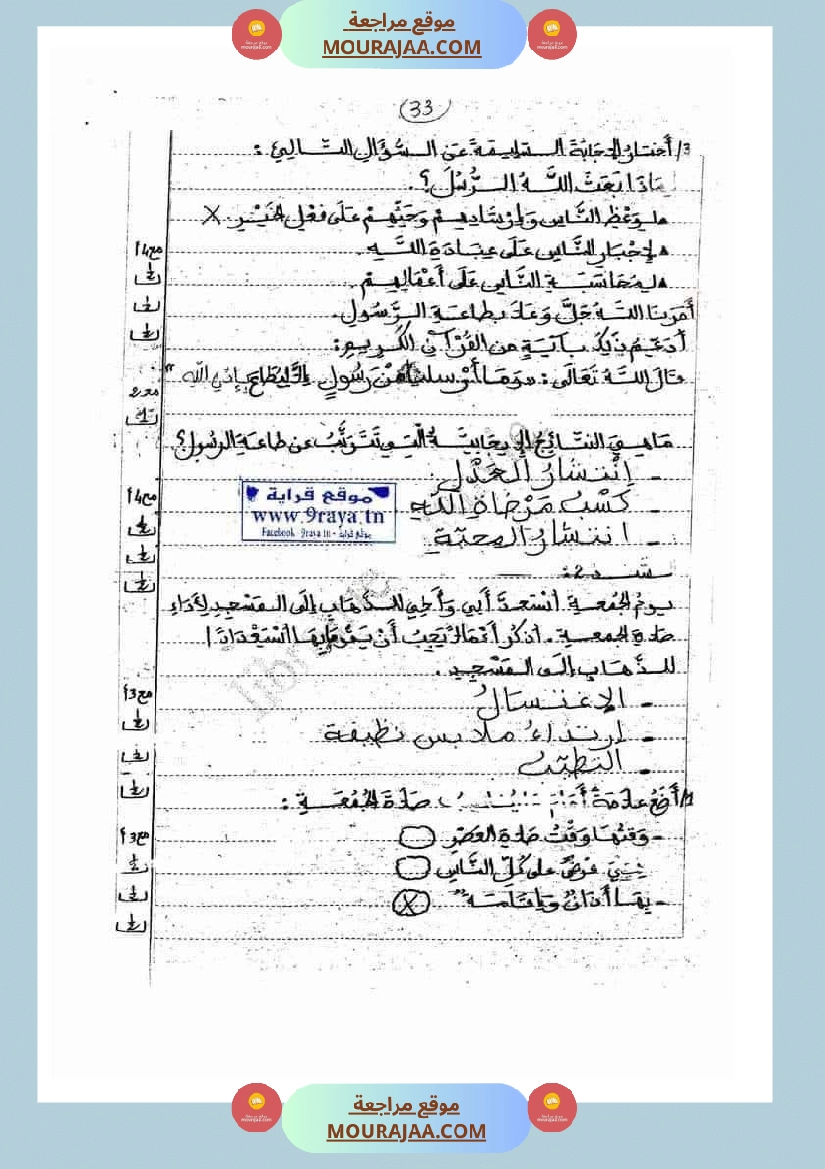 موقع مراجعة
MOURAJAA.COM
33
3/ أختار الإجابة السليمة عن السؤال التالي :
لماذا بعث اللَّه الرُّسُلَ؟
لوعْظ النَّاس وإرشادهمْ وحثِّهمْ علَى فعْل الخيْر. X
لإجبار النَّاس علَى عبادة اللَّه
مع1أ
لمحاسبة النَّاس علَى أعْمالهمْ.
أمرنا اللَّه جلَّ وعلا بطاعة الرَّسول.
أدعّم ذلك بآية من القُرْآن الكريم:
قال اللَّه تعالَى : "وما أرْسلنا منْ رسُولٍ إلَّا ليطاع بإذن الله"
مع2
ما هي النتائج الإيجابيَّة الّتي تترتّب عن طاعة الرسول؟
- إنْتشار العَدْل
- كسْب مرْضاة اللَّه
مع1أ
- انتشار المحبّة
موقع قراية
www.9raya.tn
Facebook 9raya.tn - موقع قراية
سند 2:
يوم الجُمعة اسْتعدَّ أبي وأخي للذّهاب إلَى المسْجد لأداء
صلاة الجمعة. أذكر أعْمالاً يجبُ أنْ يقُوما بها اسْتعْدادًا
للذّهاب إلى المسْجد.
- الإغتسالُ
مع3أ
- إرتداءُ ملابس نظيفة
- التطيّب
1/ أضعُ علامة أمام ما يُناسبُ صلاة الجُمُعة :
- وقتُها وقْتُ صلاة العصْر
مع3أ
- هي فرضٌ على كُلّ النَّاس
- بها أذانٌ وإقامة X
موقع مراجعة
MOURAJAA.COM